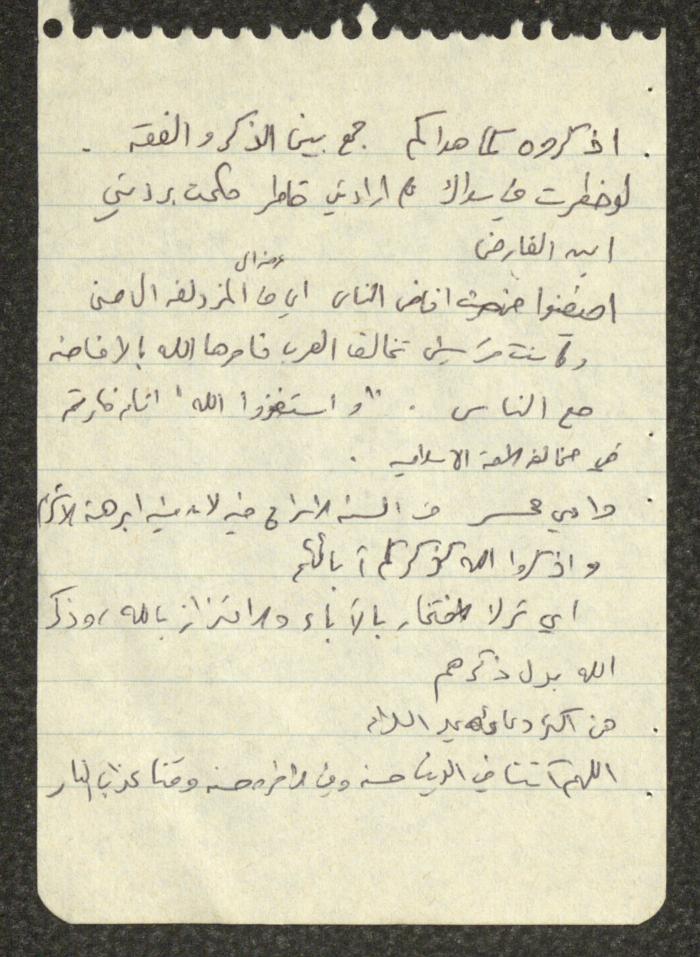 . اذكروه كما هداكم جمع بين الذكر والفقه .
لو خطرت في سواك ارادتي خاطر حكمت بردتي
ابن الفارض
افيضوا من حيث افاض الناس اي من المزدلفه الى منى
وكانت قريش تخالف العرب فامرها الله بالافاضه
مع الناس . "واستغفروا الله"
في مخالفة الاسلاميه .
. وادي محسر من السنه الاسراع فيه لان فيه ابرهة
واذكروا الله كذكركم آبائكم
اي ترك الافتخار بالآباء والاعتزاز بالله، وذكر
الله بدل ذكرهم
. من اكثر دعائه عليه السلام
. اللهم آتنا في الدنيا حسنه وفي الاخره حسنه وقنا عذاب النار